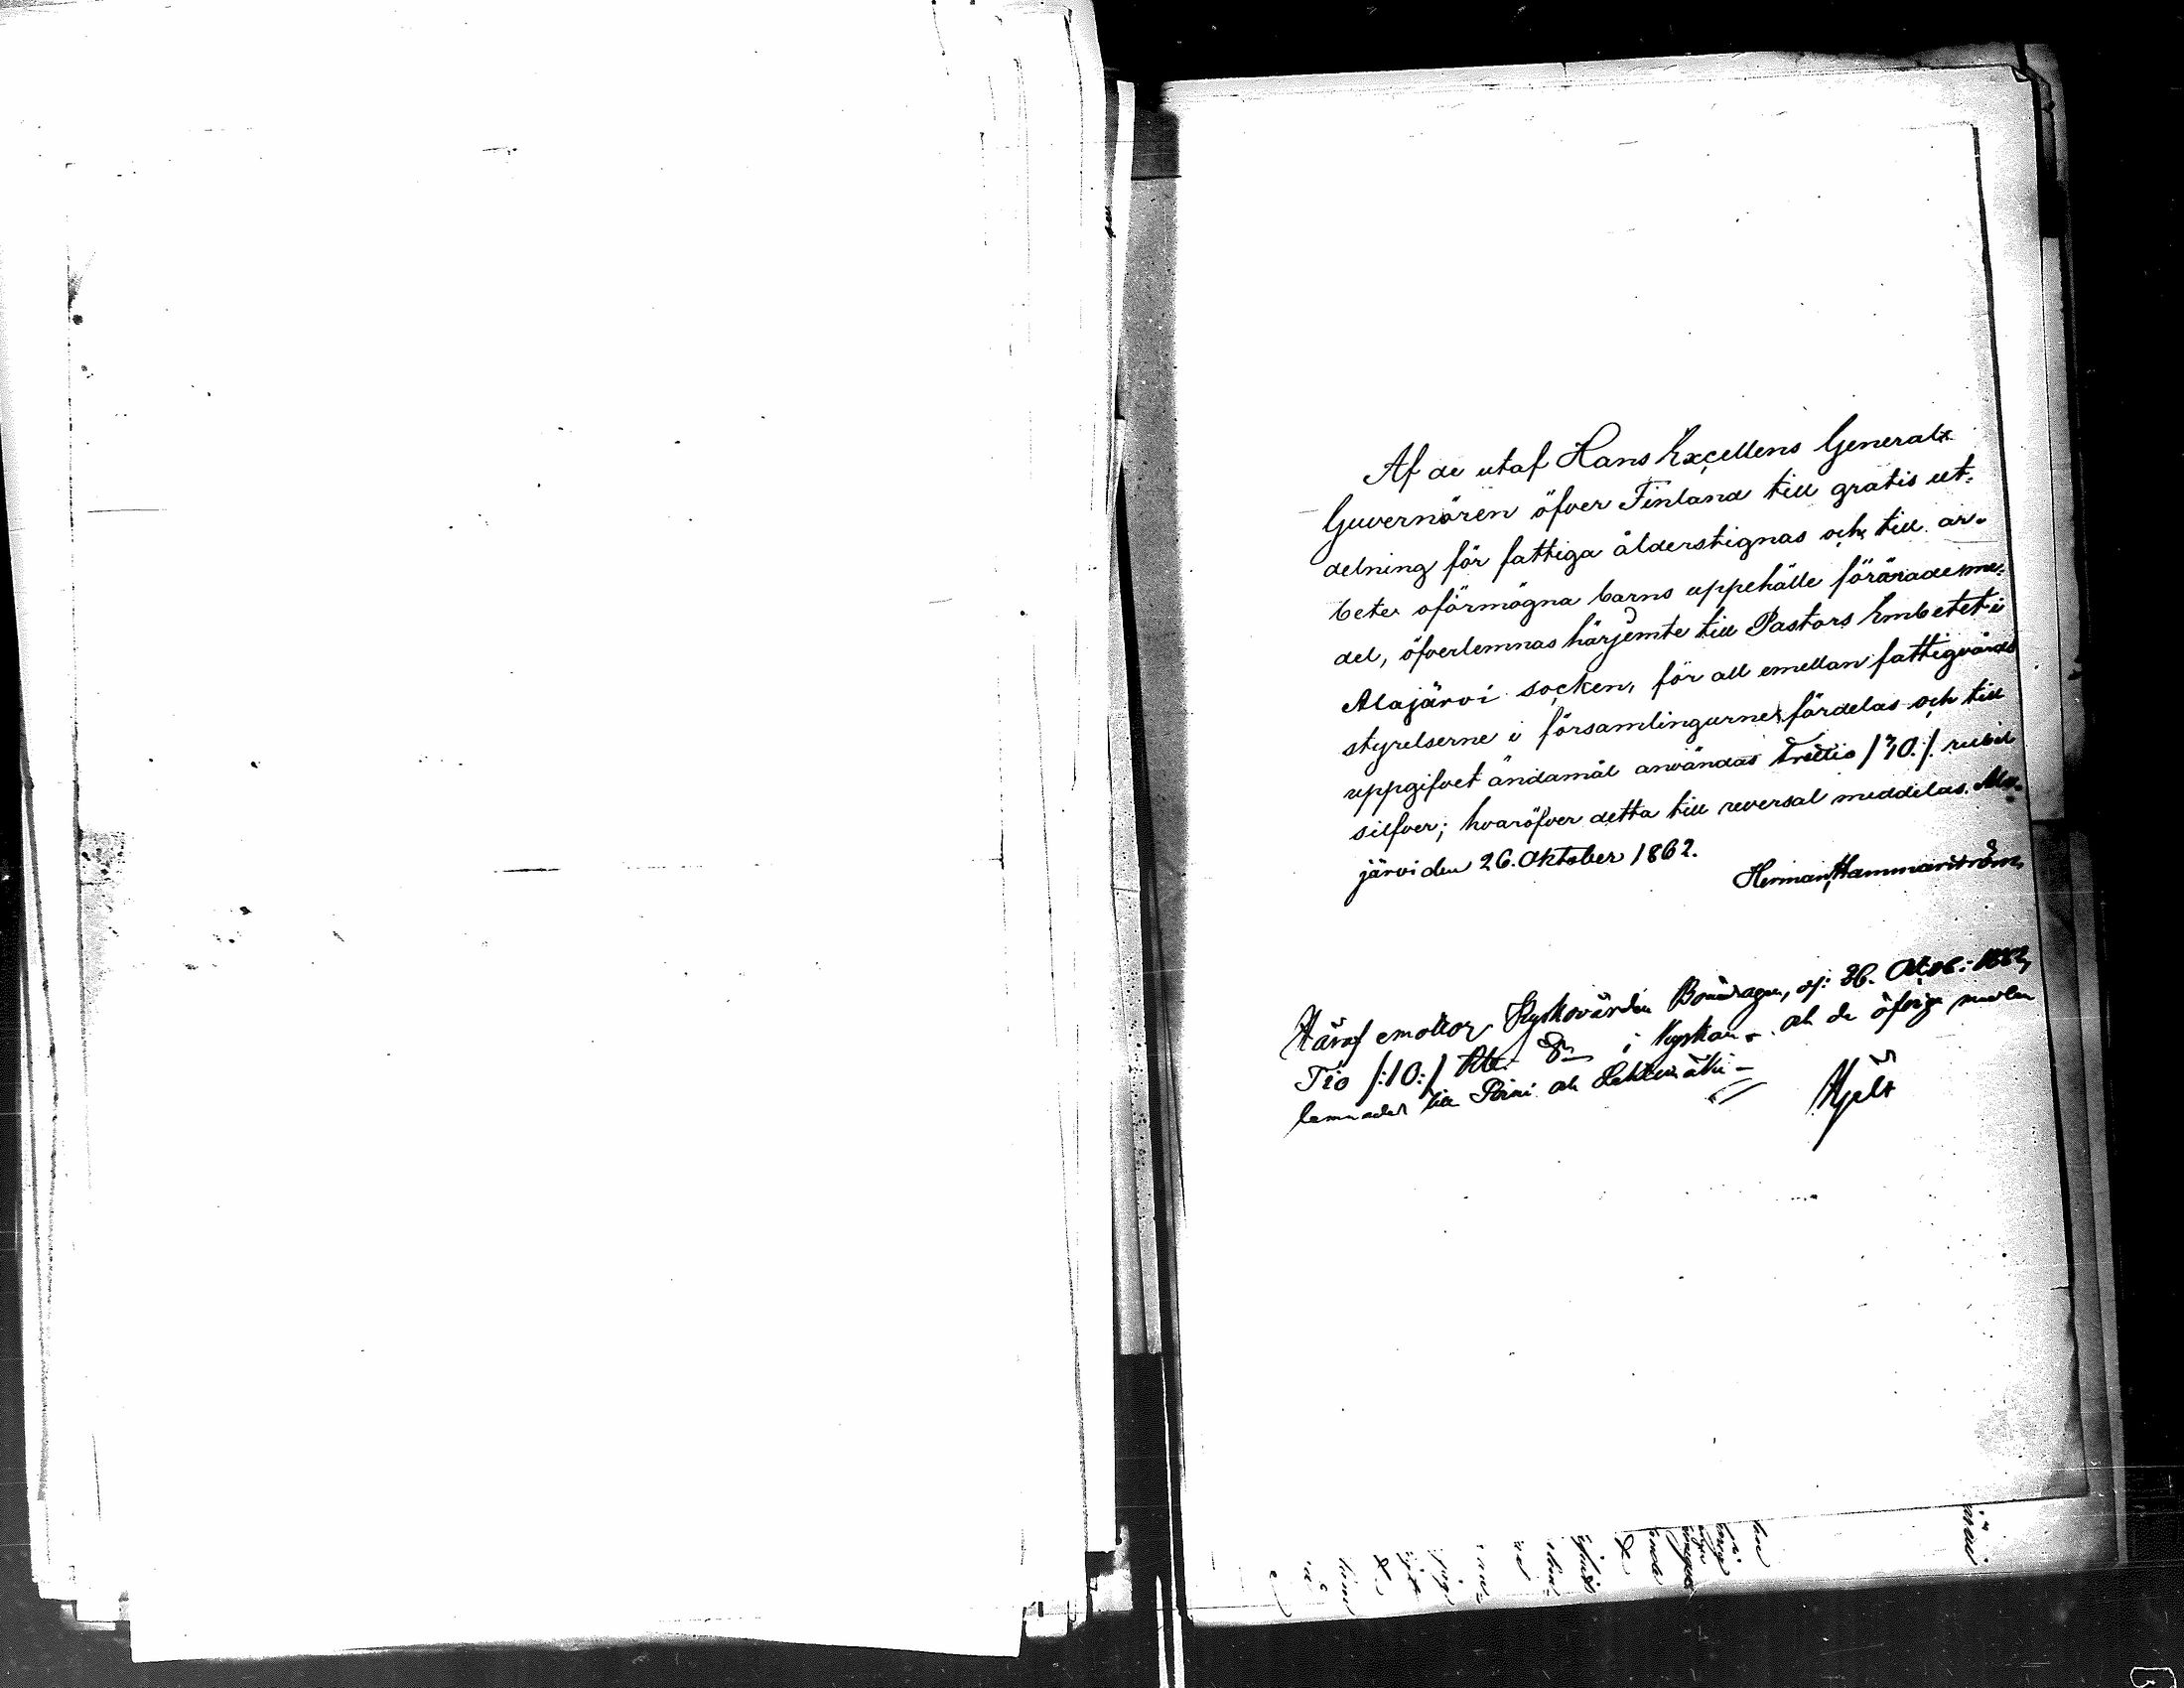 Af de utaf Hans Excellens General-
Guvernören öfver Finland till gratis ut-
delning för fattiga ålderstignas och till ar-
bete oförmögna barns uppehälle förärade me-
del, öfverlemnas härjemte till Pastors Embetet i
Alajärvi socken, för att emellan fattigvårds
styrelserne i församlingarne fördelas och till
uppgifvet ändamål användas Trettio /30./. rubel
silfver; hvaröfver detta till reversal meddelas. Ala-
järvi den 26. Oktober 1862.
Herman Hammarström
Häraf emottog Kyrkovärden 26. Oktob: 1862,
Tio /:10:/ Rbl. i och de öfriga medlen
lemnades till och
Hjelt